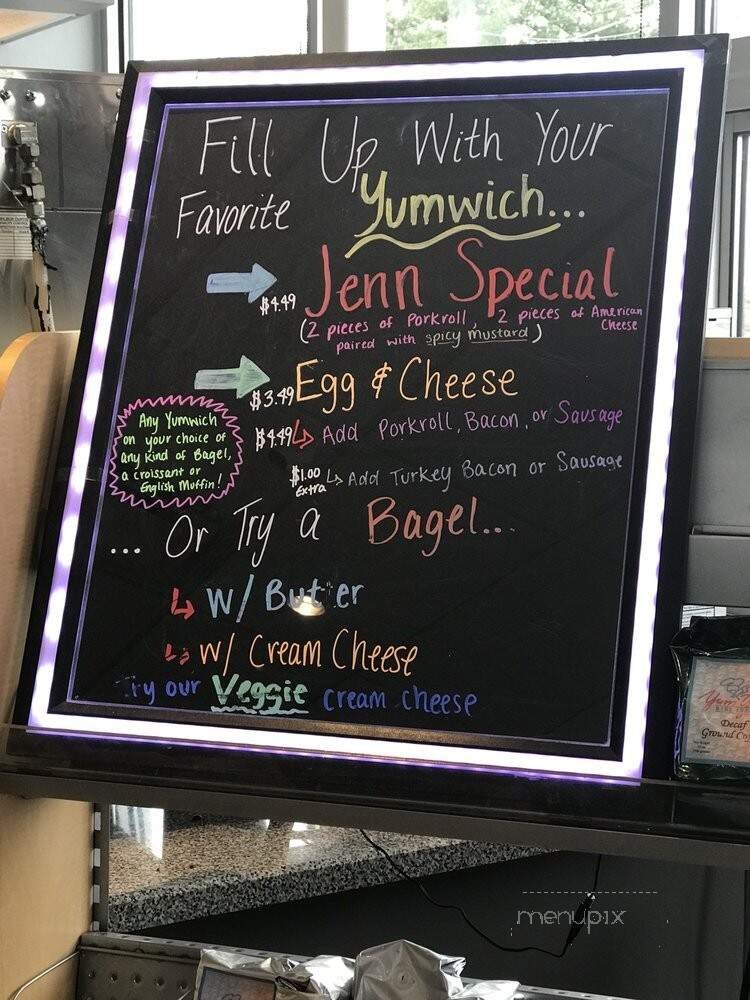 Fill Up With Your
Favorite Yumwich...
$4.49 Jenn Special
(2 pieces of Porkroll, 2 pieces of American
Cheese
paired with spicy mustard)
$3.49 Egg & Cheese
$4.49 Add Porkroll, Bacon, or Sausage
$1.00
Extra Add Turkey Bacon or Sausage
Any Yumwich
on your choice of
any kind of Bagel,
a croissant or
English Muffin!
... Or Try a Bagel...
w/ Butter
w/ Cream Cheese
Try our Veggie cream cheese
Decaf
menupix